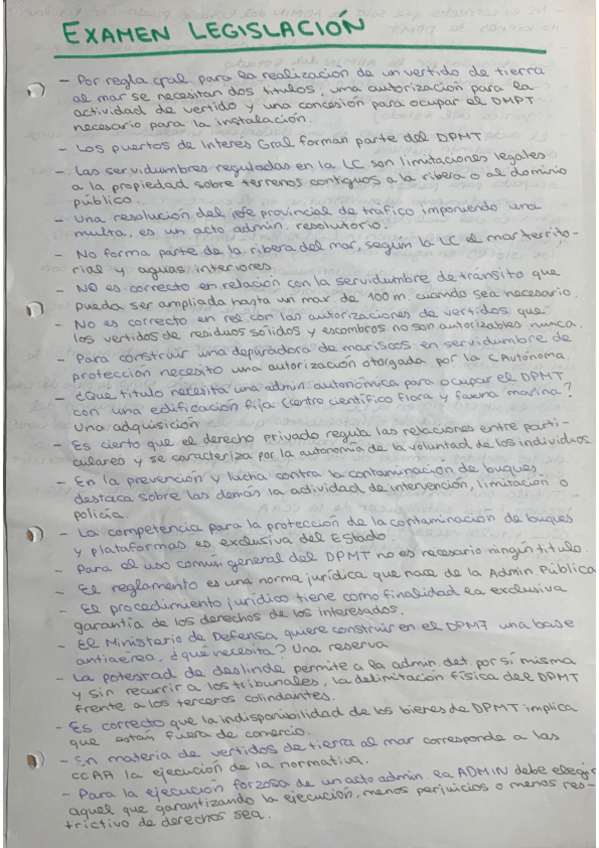 EXAMEN LEGISLACIÓN
- Por regla gral para la realización de un vertido de tierra
al mar se necesitan dos títulos, una autorización para la
actividad de vertido y una concesión para ocupar el DMPT
necesario para la instalación.
- Los puertos de Interes Gral forman parte del DPMT
- Las servidumbres reguladas en la LC son limitaciones legales
a la propiedad sobre terrenos contiguos a la ribera o al dominio
público.
- Una resolución del jefe provincial de trafico imponiendo una
multa, es un acto admin. resolutorio.
- No forma parte de la ribera del mar, según la LC el mar territo-
rial y aguas interiores
- NO es correcto en relación con la servidumbre de tránsito que
pueda ser ampliada hasta un max de 100m cuando sea necesario.
- No es correcto en rel con las autorizaciones de vertidos que
los vertidos de residuos solidos y escombros no son autorizables nunca.
- Para construir una depuradora de mariscos en servidumbre de
protección necesito una autorización otorgada por la C Autónoma.
- ¿Que titulo necesita una admin. autonómica para ocupar el DPMT
con una edificación fija (centro científico flora y fauna marina?
una adquisición
- Es cierto que el derecho privado regula las relaciones entre parti-
culares y se caracteriza por la autonomía de la voluntad de los individuos
- En la prevención y lucha contra la contaminación de buques
destaca sobre las demás la actividad de intervención, limitación o
policía.
- La competencia para la protección de la contaminación de buques
y plataformas es exclusiva del Estado
- Para el uso común general del DPMT no es necesario ningún titulo.
- El reglamento es una norma jurídica que nace de la Admin Pública
- El procedimiento jurídico tiene como finalidad la exclusiva
garantía de los derechos de los interesados.
- El Ministerio de Defensa quiere construir en el DPMT una base
antiaérea, ¿qué necesita? Una reserva
- La potestad de deslinde permite a la admin. det. por sí misma
y sin recurrir a los tribunales, la delimitación física del DPMT
frente a los terceros colindantes.
- Es correcto que la indisponibilidad de los bienes de DPMT implica
que están fuera de comercio.
- En materia de vertidos de tierra al mar corresponde a las
CCAA la ejecución de la normativa.
- Para la ejecución forzosa de un acto admin. la ADMIN debe elegir
aquel que garantizando la ejecución, menos perjuicios o menos res-
trictivo de derechos sea.